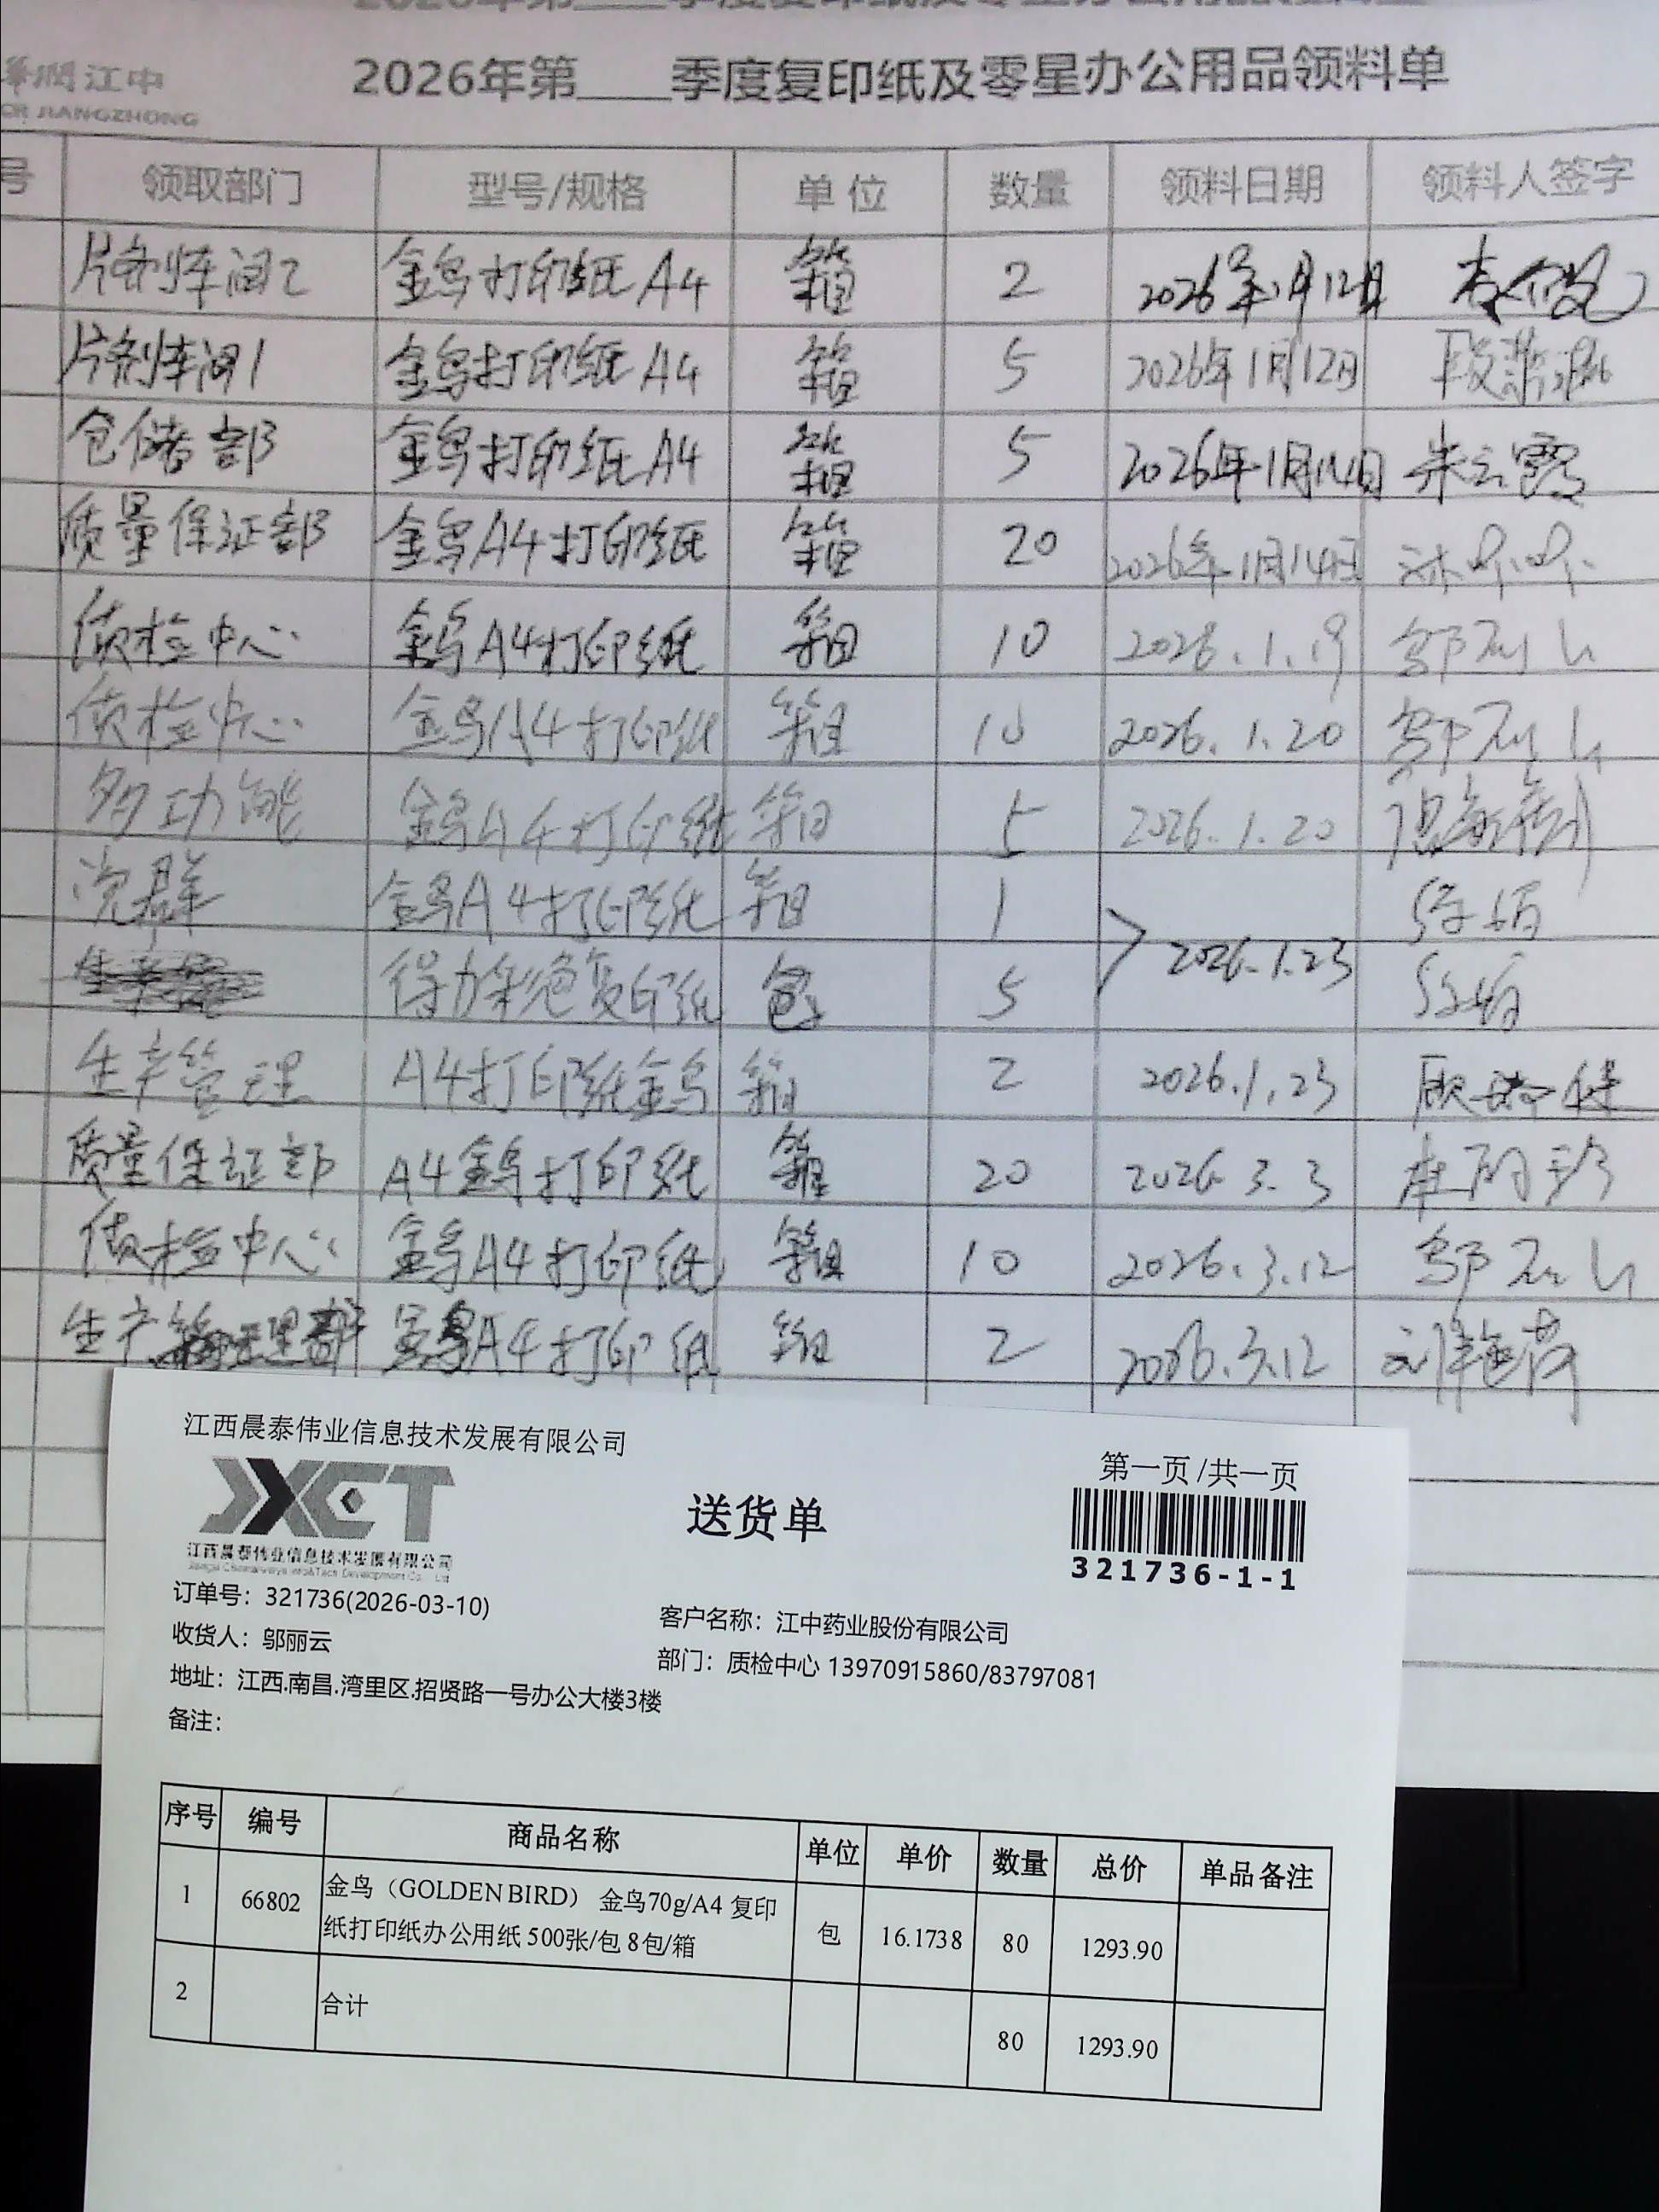 2026年第___季度复印纸及零星办公用品领料单
華潤江中
CR JIANGZHONG
号 领取部门 型号/规格 单位 数量 领料日期 领料人签字
片剂车间2 金鸟打印纸A4 箱 2 2026年1月12日
片剂车间1 金鸟打印纸A4 箱 5 2026年1月12日
仓储部 金鸟打印纸A4 箱 5 2026年1月14日 朱云霞
质量保证部 金鸟A4打印纸 箱 20 2026年1月14日
质检中心 金鸟A4打印纸 箱 10 2026.1.19 邬丽云
质检中心 金鸟A4打印纸 箱 10 2026.1.20 邬丽云
多功能 金鸟A4打印纸 箱 5 2026.1.20
党群 金鸟A4打印纸 箱 1
2026.1.23
得力彩色复印纸 包 5
生产管理 A4打印纸金鸟 箱 2 2026.1.23
质量保证部 A4金鸟打印纸 箱 20 2026.3.3
质检中心 金鸟A4打印纸 箱 10 2026.3.12 邬丽云
生产管理部 金鸟A4打印纸 箱 2 2026.3.12 刘艳荷
江西晨泰伟业信息技术发展有限公司
第一页/共一页
JXCT
送货单
江西晨泰伟业信息技术发展有限公司
321736-1-1
订单号：321736(2026-03-10)
客户名称：江中药业股份有限公司
收货人：邬丽云
部门：质检中心 13970915860/83797081
地址：江西.南昌.湾里区.招贤路一号办公大楼3楼
备注：
序号 编号 商品名称 单位 单价 数量 总价 单品备注
1 66802 金鸟（GOLDEN BIRD） 金鸟70g/A4 复印
纸打印纸办公用纸 500张/包 8包/箱 包 16.1738 80 1293.90
2 合计 80 1293.90